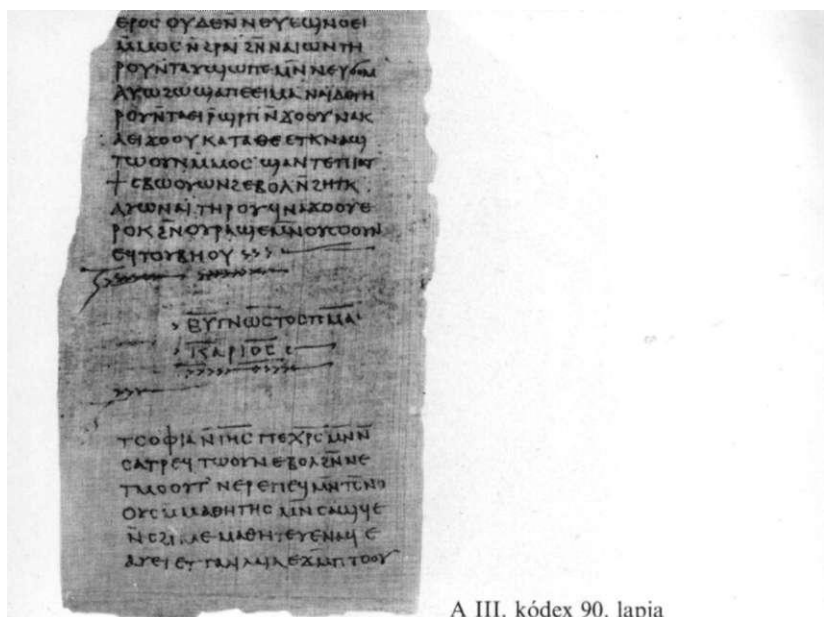 ⲉⲣⲟⲥ ⲟⲩⲇⲉⲛ̄ⲛⲉⲩⲉϣⲛⲟⲉⲓ
ⲙ̄ⲙⲟⲥ ⲛ̄ϩⲣⲁⲓ ϩⲛ̄ⲛⲁⲓⲱⲛ ⲧⲏ
ⲣⲟⲩ ⲛ̄ⲧⲁⲩϣⲱⲡⲉ ⲙⲛ̄ⲛⲉⲩϭⲟⲙ
ⲣⲟⲩ ⲛ̄ⲧⲁⲉⲓⲣ̄ϣⲣⲡ ⲛ̄ϫⲟⲟⲩ ⲛⲁⲕ
ⲁⲉⲓϫⲟⲟⲩ ⲕⲁⲧⲁⲑⲉ ⲉⲧⲕⲛⲁϣ
ⲧⲱⲟⲩⲛ ⲙ̄ⲙⲟⲥ ϣⲁⲛⲧⲉⲡⲓⲁⲧ
ϯⲥⲃⲱ ⲟⲩⲱⲛϩ ⲉⲃⲟⲗ ⲛ̄ϩⲏⲧⲕ
ⲁⲩⲱ ⲛⲁⲓ ⲧⲏⲣⲟⲩ ϥⲛⲁϫⲟⲟⲩⲉ
ⲣⲟⲕ ϩⲛ̄ⲛⲟⲩⲣⲁϣⲉ ⲙⲛ̄ⲛⲟⲩⲥⲟⲟⲩⲛ
ⲉϥⲧⲟⲩⲃⲏⲟⲩ
ⲉⲩⲅⲛⲱⲥⲧⲟⲥ ⲡⲙⲁ
ⲕⲁⲣⲓⲟⲥ
ⲧⲥⲟⲫⲓⲁ ⲛ̄ⲓ̄ⲏ̄ⲥ̄ ⲡⲉⲭ̄ⲣ̄ⲥ̄ ⲙⲛ̄ⲛ̄
ⲥⲁⲧⲣⲉϥⲧⲱⲟⲩⲛ ⲉⲃⲟⲗ ϩⲛ̄ⲛⲉ
ⲧⲙⲟⲟⲩⲧ ⲛⲉⲣⲉⲡⲉϥⲙⲛ̄ⲧⲥⲛⲟ
ⲟⲩⲥ ⲙ̄ⲙⲁⲑⲏⲧⲏⲥ ⲙⲛ̄ⲥⲁϣϥⲉ
ⲛ̄ⲥϩⲓⲙⲉ ⲙⲁⲑⲏⲧⲉⲩⲉ ⲛⲁϥ ⲉ
ⲁⲩⲉⲓ ⲉⲧⲅⲁⲗⲓⲗⲁⲓⲁ ⲉϫⲙ̄ⲡⲧⲟⲟⲩ
A III. kódex 90. lapja